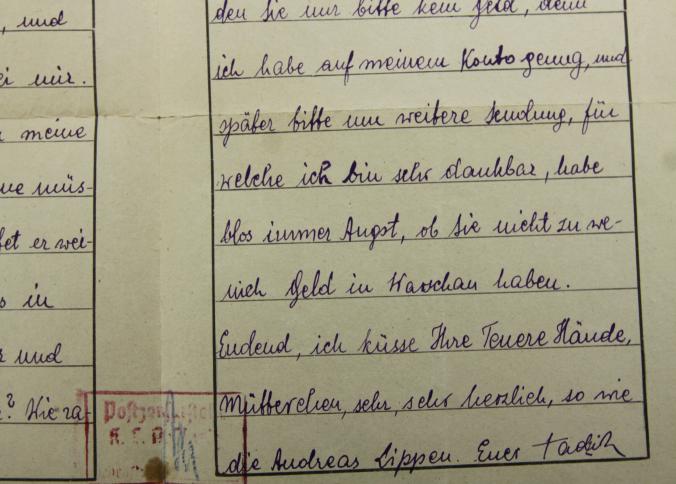 , und
ei mir.
meine
ne müs-
tet er wei-
s in
und
? Wie ra-
den Sie nur bitte kein Geld, denn
ich habe auf meinem Konto genug, und
später bitte um weitere Sendung, für
welche ich bin sehr dankbar, habe
blos immer Angst, ob Sie nicht zu we-
nich Geld in Warschau haben.
Endend, ich küsse Ihre Teuere Hände,
Mütterchen, sehr, sehr herzlich, so wie
die Andreas Lippen. Euer Tadzik